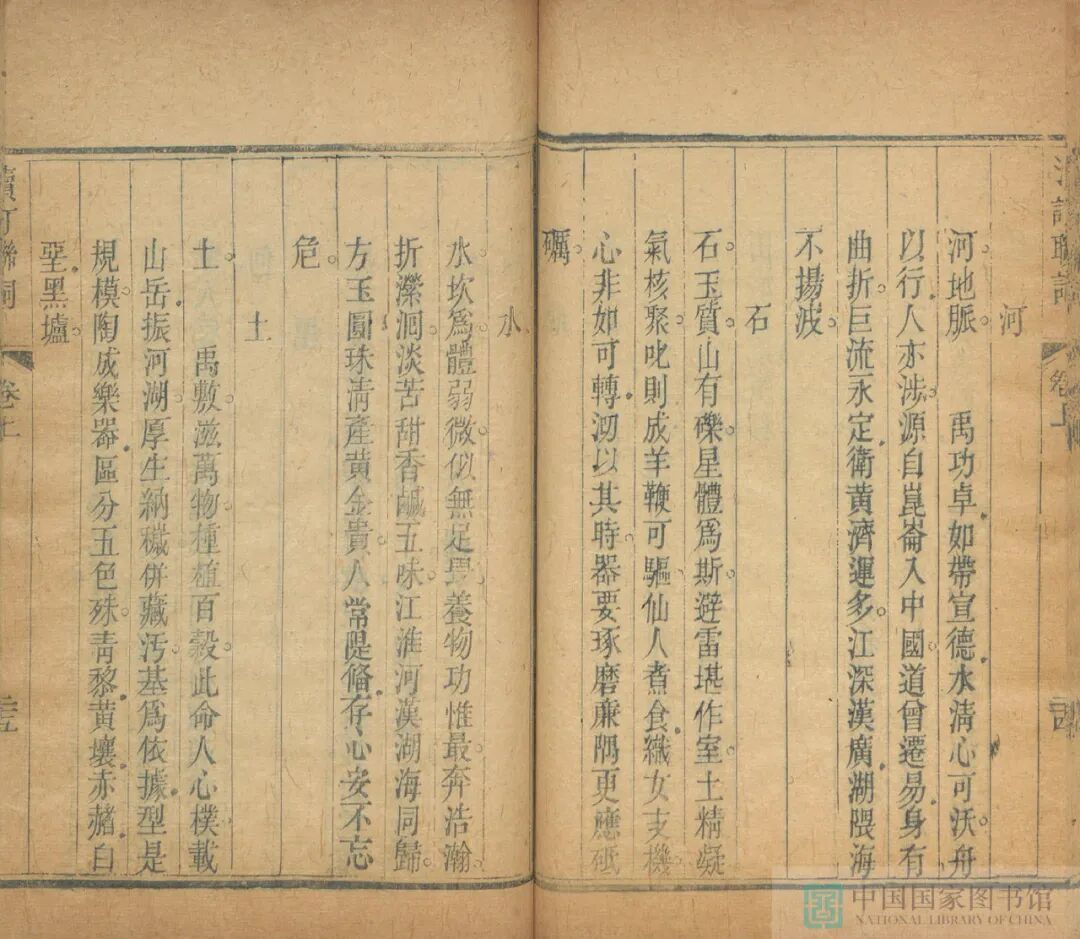 河
河地脈。禹功卓如帶宣德水淸心可沃。舟
以行人亦涉。源自崑崙入中國道曾遷易身有
曲折。巨流永定衛黃濟運多。江深漢廣湖隈海
不揚波。
石
石玉質。山有礫星體爲斯。避雷堪作室。土精凝
氣核聚。叱則成羊鞭可驅。仙人煮食織女支機
心非如可轉。沏以其時。器要琢磨廉隅更應砥
礪。
水
水坎爲體弱微。似無足畏養物功惟最。奔浩瀚。
折濴洄淡苦甜香鹹五味。江淮河漢湖海同歸。
方玉圓珠淸產黃金貴。人常隄脩存心安不忘
危。
土
土。禹敷。滋萬物。種植百穀。此命人心樸。載
山岳振河湖。厚生納穢併藏汚。基爲依據型是
規模。陶成樂器區分五色殊。靑黎黃壤赤赭白
堊黑壚。
卷上
卷上
二十五
中国国家图书馆
NATIONAL LIBRARY OF CHINA